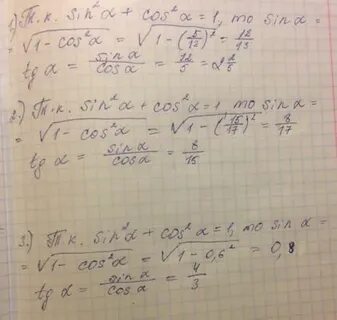 1) Т.к. sin²α + cos²α = 1, то sin α =
= √(1 - cos²α) = √(1 - (5/12)²) = 12/13
tg α = sin α / cos α = 12/5 = 2 2/5
2.) Т.к. sin²α + cos²α = 1, то sin α =
= √(1 - cos²α) = √(1 - (15/17)²) = 8/17
tg α = sin α / cos α = 8/15
3.) Т.к. sin²α + cos²α = 1, то sin α =
= √(1 - cos²α) = √(1 - 0,6²) = 0,8
tg α = sin α / cos α = 4/3